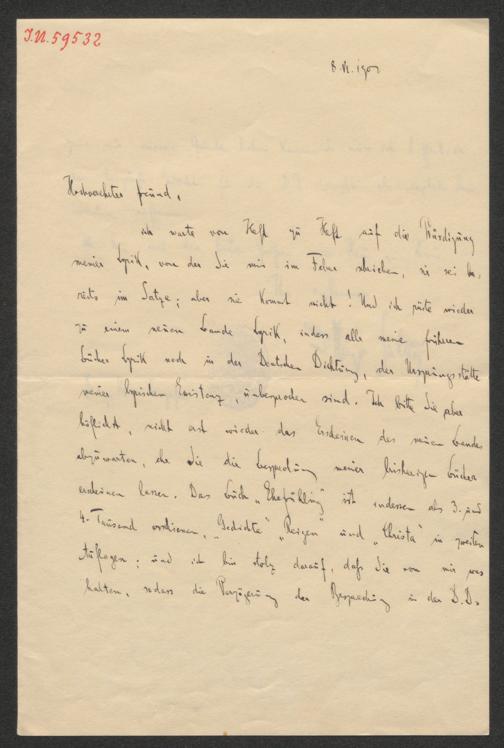 I.N. 59532
8. VI. 1901
Hochverehrter Freund,
ich warte von Heft zu Heft auf die Würdigung
meiner Lyrik, von der Sie mir im Feber schrieben, sie sei be-
reits im Satze; aber sie kommt nicht! Und ich rüste wieder
zu einem neuen Bande Lyrik, indess alle meine frühern
Bücher Lyrik noch in der Deutschen Dichtung, der Ursprungsstätte
meiner lyrischen Existenz, unbesprochen sind. Ich bitte Sie aber
höflichst, nicht erst wieder das Erscheinen des neuen Bandes
abzuwarten, ehe Sie die Besprechung meiner bisherigen Bücher
erscheinen lassen. Das Buch „Ehefrühling" ist indessen als 3. und
4. Tausend erschienen, „Gedichte" „Reigen" und „Christa" in zweiten
Auflagen; und ich bin stolz darauf, daß Sie von mir was
halten, sodass die Verzögerung der Besprechung in der D.D.